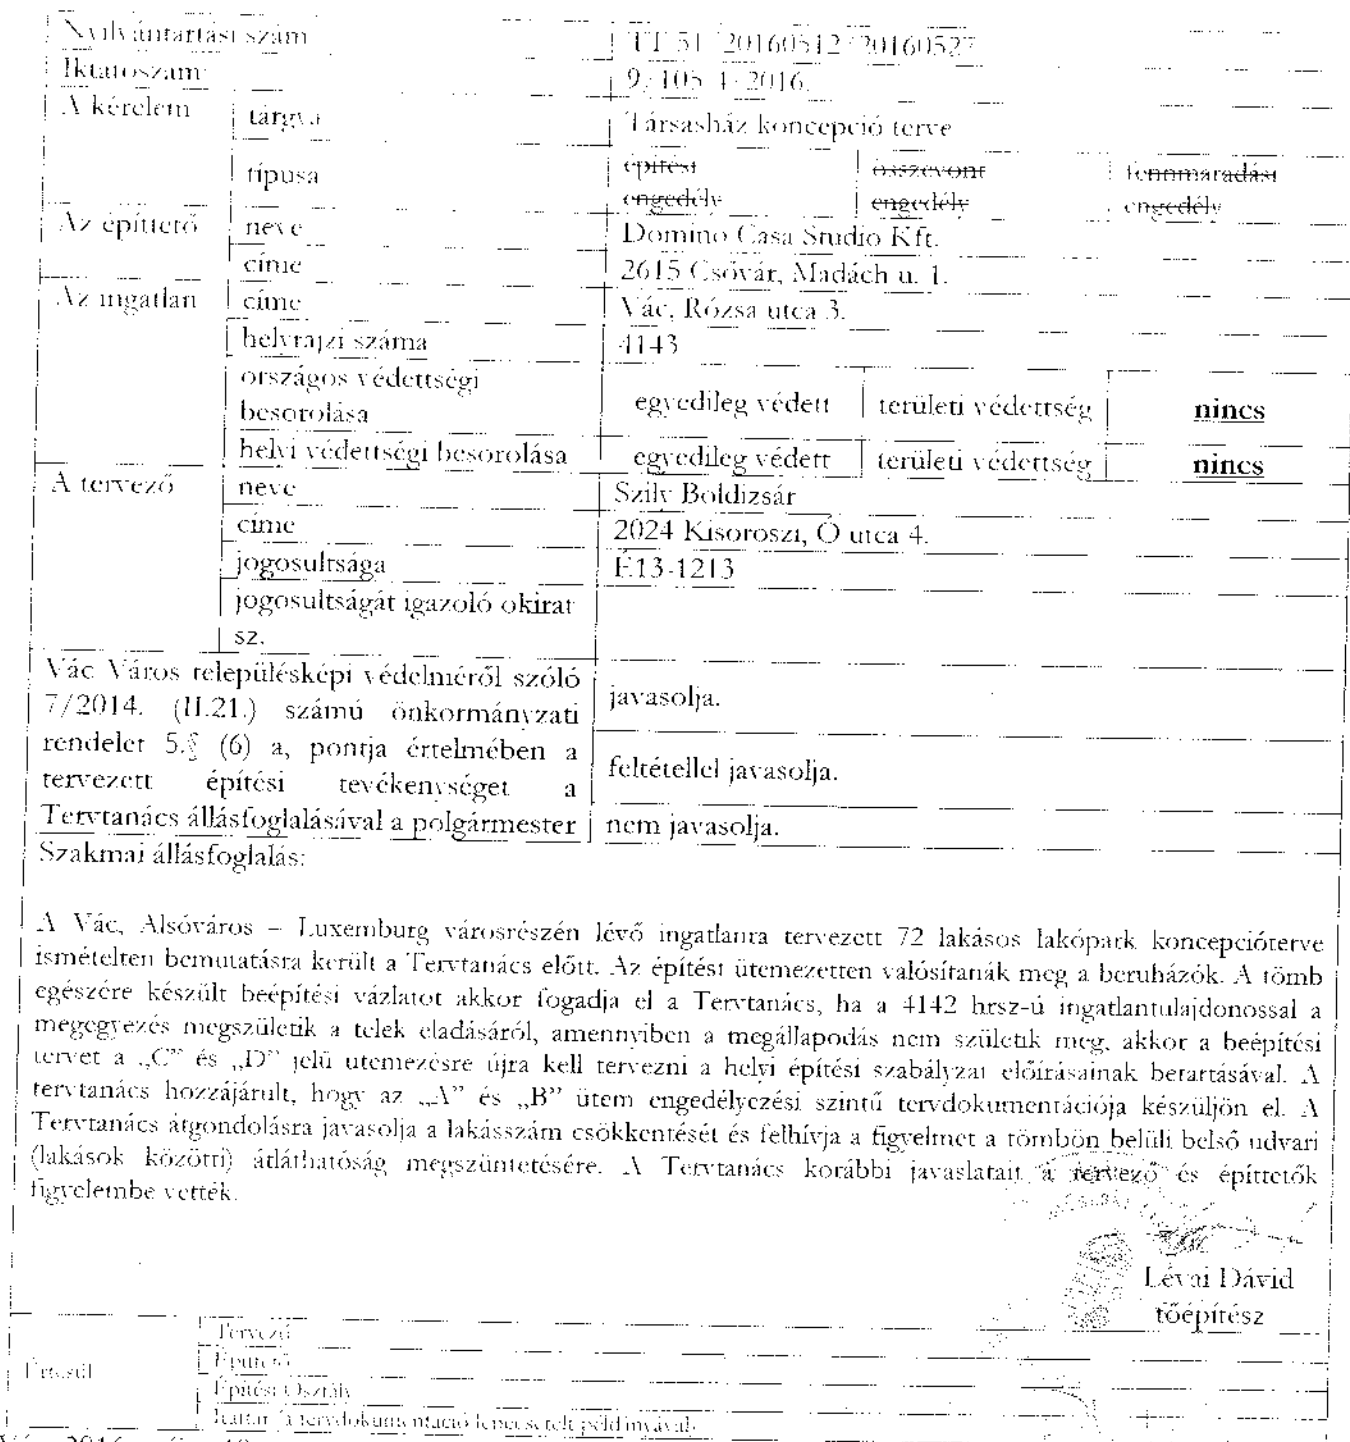 Nyilvántartási szám TT 51/20160512/20160527
Iktatószám: 9/105-4/2016.
A kérelem tárgya Társasház koncepció terve
típusa építési engedély összevont engedély fennmaradási engedély
Az építtető neve Domino Casa Studio Kft.
címe 2615 Csővár, Madách u. 1.
Az ingatlan címe Vác, Rózsa utca 3.
helyrajzi száma 4143
országos védettségi
besorolása egyedileg védett területi védettség nincs
helyi védettségi besorolása egyedileg védett területi védettség nincs
A tervező neve Szily Boldizsár
címe 2024 Kisoroszi, Ó utca 4.
jogosultsága É13-1213
jogosultságát igazoló okirat
sz.
Vác Város településképi védelméről szóló
7/2014. (II.21.) számú önkormányzati
rendelet 5.§ (6) a, pontja értelmében a
tervezett építési tevékenységet a
Tervtanács állásfoglalásával a polgármester
javasolja.
feltétellel javasolja.
nem javasolja.
Szakmai állásfoglalás:
A Vác, Alsóváros – Luxemburg városrészén lévő ingatlanra tervezett 72 lakásos lakópark koncepcióterve
ismételten bemutatásra került a Tervtanács előtt. Az építést ütemezetten valósítanák meg a beruházók. A tömb
egészére készült beépítési vázlatot akkor fogadja el a Tervtanács, ha a 4142 hrsz-ú ingatlantulajdonossal a
megegyezés megszületik a telek eladásáról, amennyiben a megállapodás nem születik meg, akkor a beépítési
tervet a „C” és „D” jelű ütemezésre újra kell tervezni a helyi építési szabályzat előírásainak betartásával. A
tervtanács hozzájárult, hogy az „A” és „B” ütem engedélyezési szintű tervdokumentációja készüljön el. A
Tervtanács átgondolásra javasolja a lakásszám csökkentését és felhívja a figyelmet a tömbön belüli belső udvari
(lakások közötti) átláthatóság megszüntetésére. A Tervtanács korábbi javaslatait a tervező és építtetők
figyelembe vették.
Lévai Dávid
főépítész
Értesül
Tervező
Építtető
Építési Osztály
Irattár (a tervdokumentáció lepecsételt példányával)